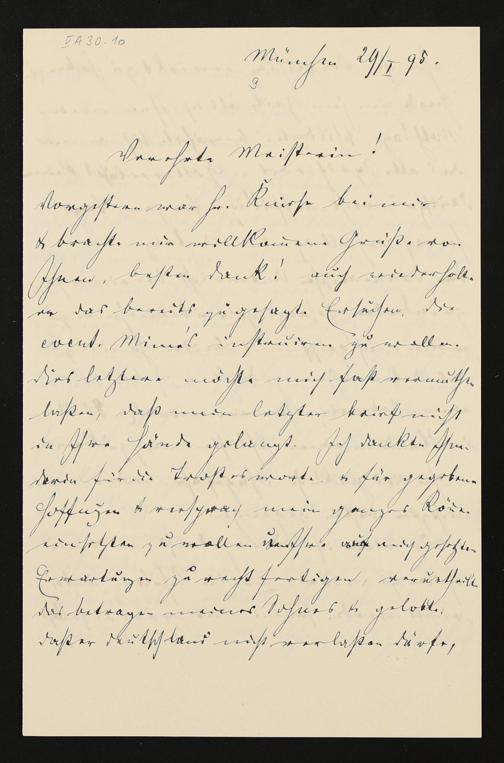 VA 30-10
München 29/I 95.
9
Verehrte Meisterin!
Vorgestern war Hr. Kniese bei mir
& brachte mir willkom̄ene Grüße von
Ihnen, besten Dank! auch wiederholte
er das bereits zugesagte Ersuchen, die
event. Mime's instruiren zu wollen.
Dies letztere möchte mich fast vermuthen
laßen, daß mein letzter Brief nicht
in Ihre Hände gelangt. Ich dankte Ihnen
darin für die Trostesworte & für gegebene
Hoffnungen & versprach mein ganzes Können
einsetzen zu wollen um Ihre auf mich gesetzten
Erwartungen zu rechtfertigen, verurtheilte
das betragen meines Sohnes & gelobte,
daß er Deutschland nicht verlaßen dürfe,